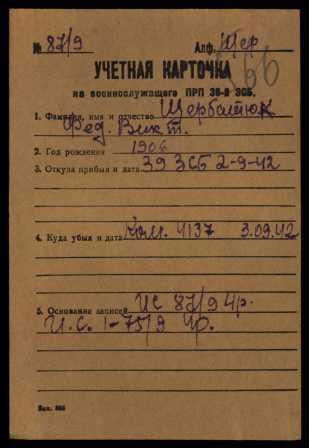 № 87/9 Алф. Щер
166
УЧЕТНАЯ КАРТОЧКА
на военнослужащего ПРП 36-й ЗСБ.
1. Фамилия, имя и отчество Щербатюк
Фед. Викт.
2. Год рождения 1906
3. Откуда прибыл и дата 39 ЗСБ 2-9-42
4. Куда убыл и дата Ком. 4137 3.09.42
5. Основание записей ИС 87/9 4р.
И.С. 1-75/9 4р.
Зак. 865